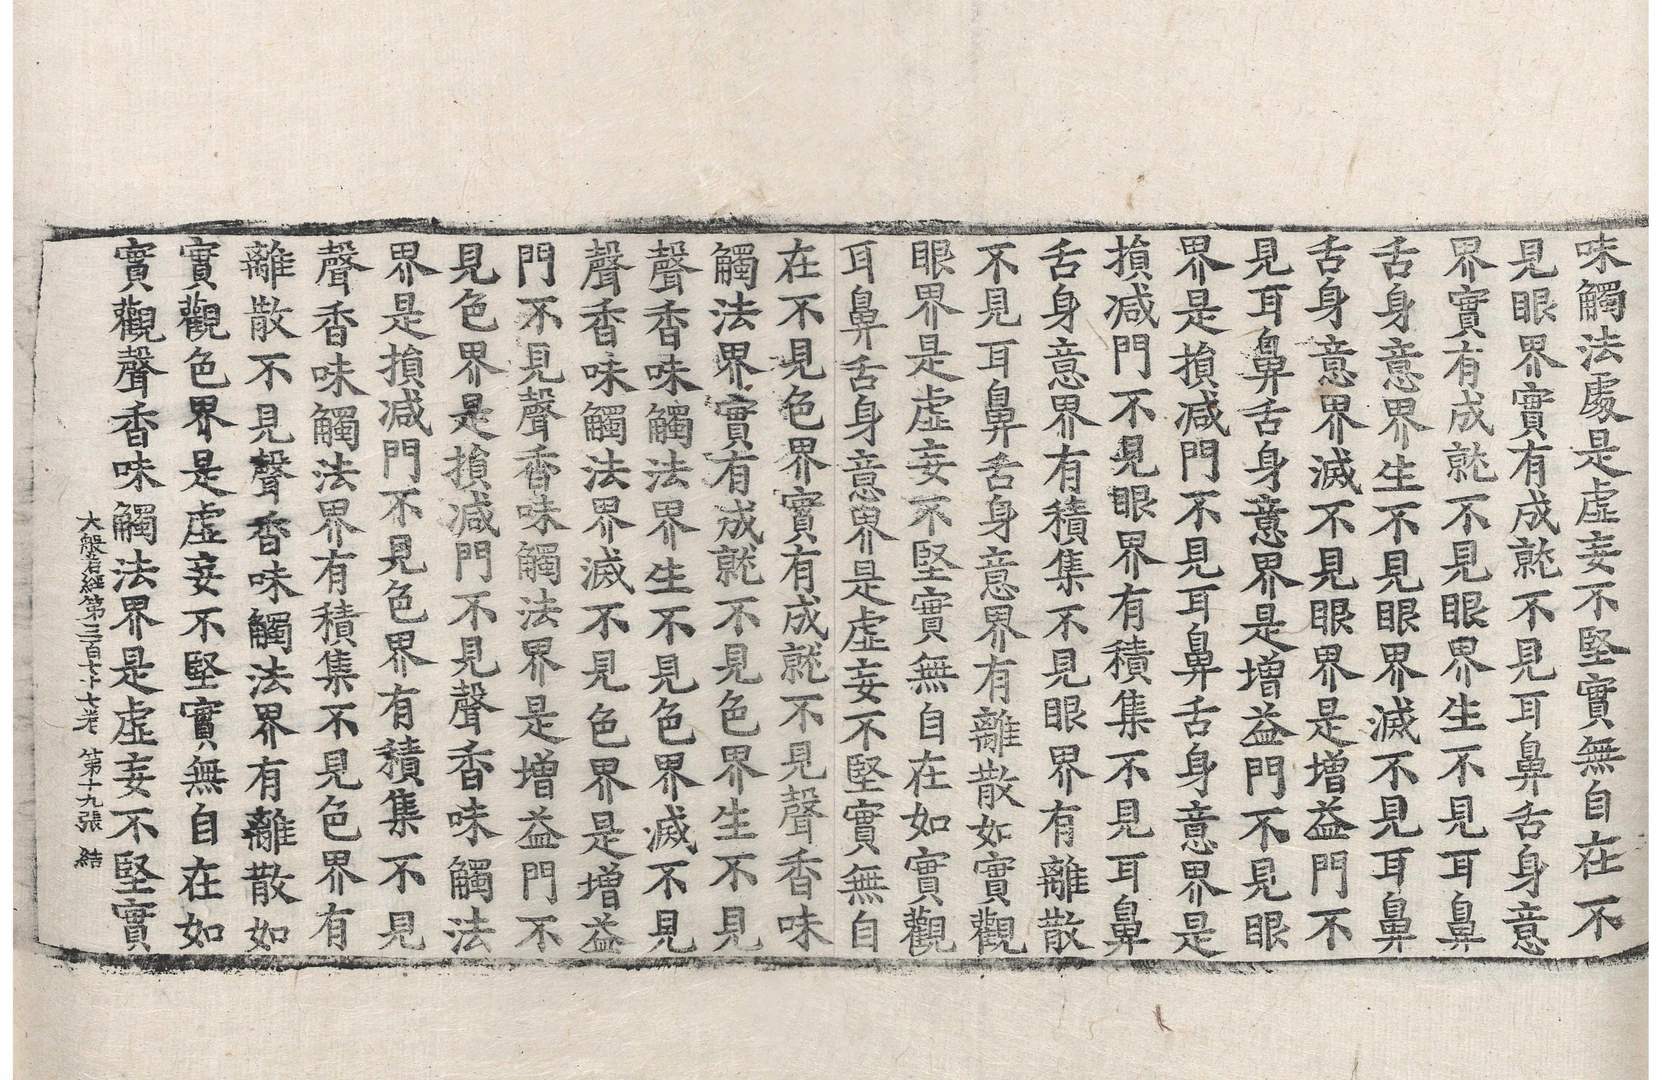 味觸法處是虛妄不堅實無自在不
見眼界實有成就不見耳鼻舌身意
界實有成就不見眼界生不見耳鼻
舌身意界生不見眼界滅不見耳鼻
舌身意界滅不見眼界是增益門不
見耳鼻舌身意界是增益門不見眼
界是損减門不見耳鼻舌身意界是
損减門不見眼界有積集不見耳鼻
舌身意界有積集不見眼界有離散
不見耳鼻舌身意界有離散如實觀
眼界是虛妄不堅實無自在如實觀
耳鼻舌身意界是虛妄不堅實無自
在不見色界實有成就不見聲香味
觸法界實有成就不見色界生不見
聲香味觸法界生不見色界滅不見
聲香味觸法界滅不見色界是增益
門不見聲香味觸法界是增益門不
見色界是損减門不見聲香味觸法
界是損减門不見色界有積集不見
聲香味觸法界有積集不見色界有
離散不見聲香味觸法界有離散如
實觀色界是虛妄不堅實無自在如
實觀聲香味觸法界是虛妄不堅實
大般若經第三百七十七卷 第十九張 結